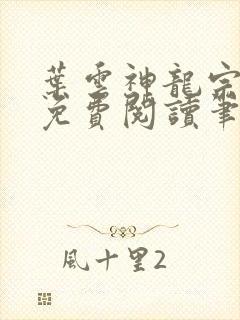 葉雲神龍宗
免費閱讀筆
風十里2